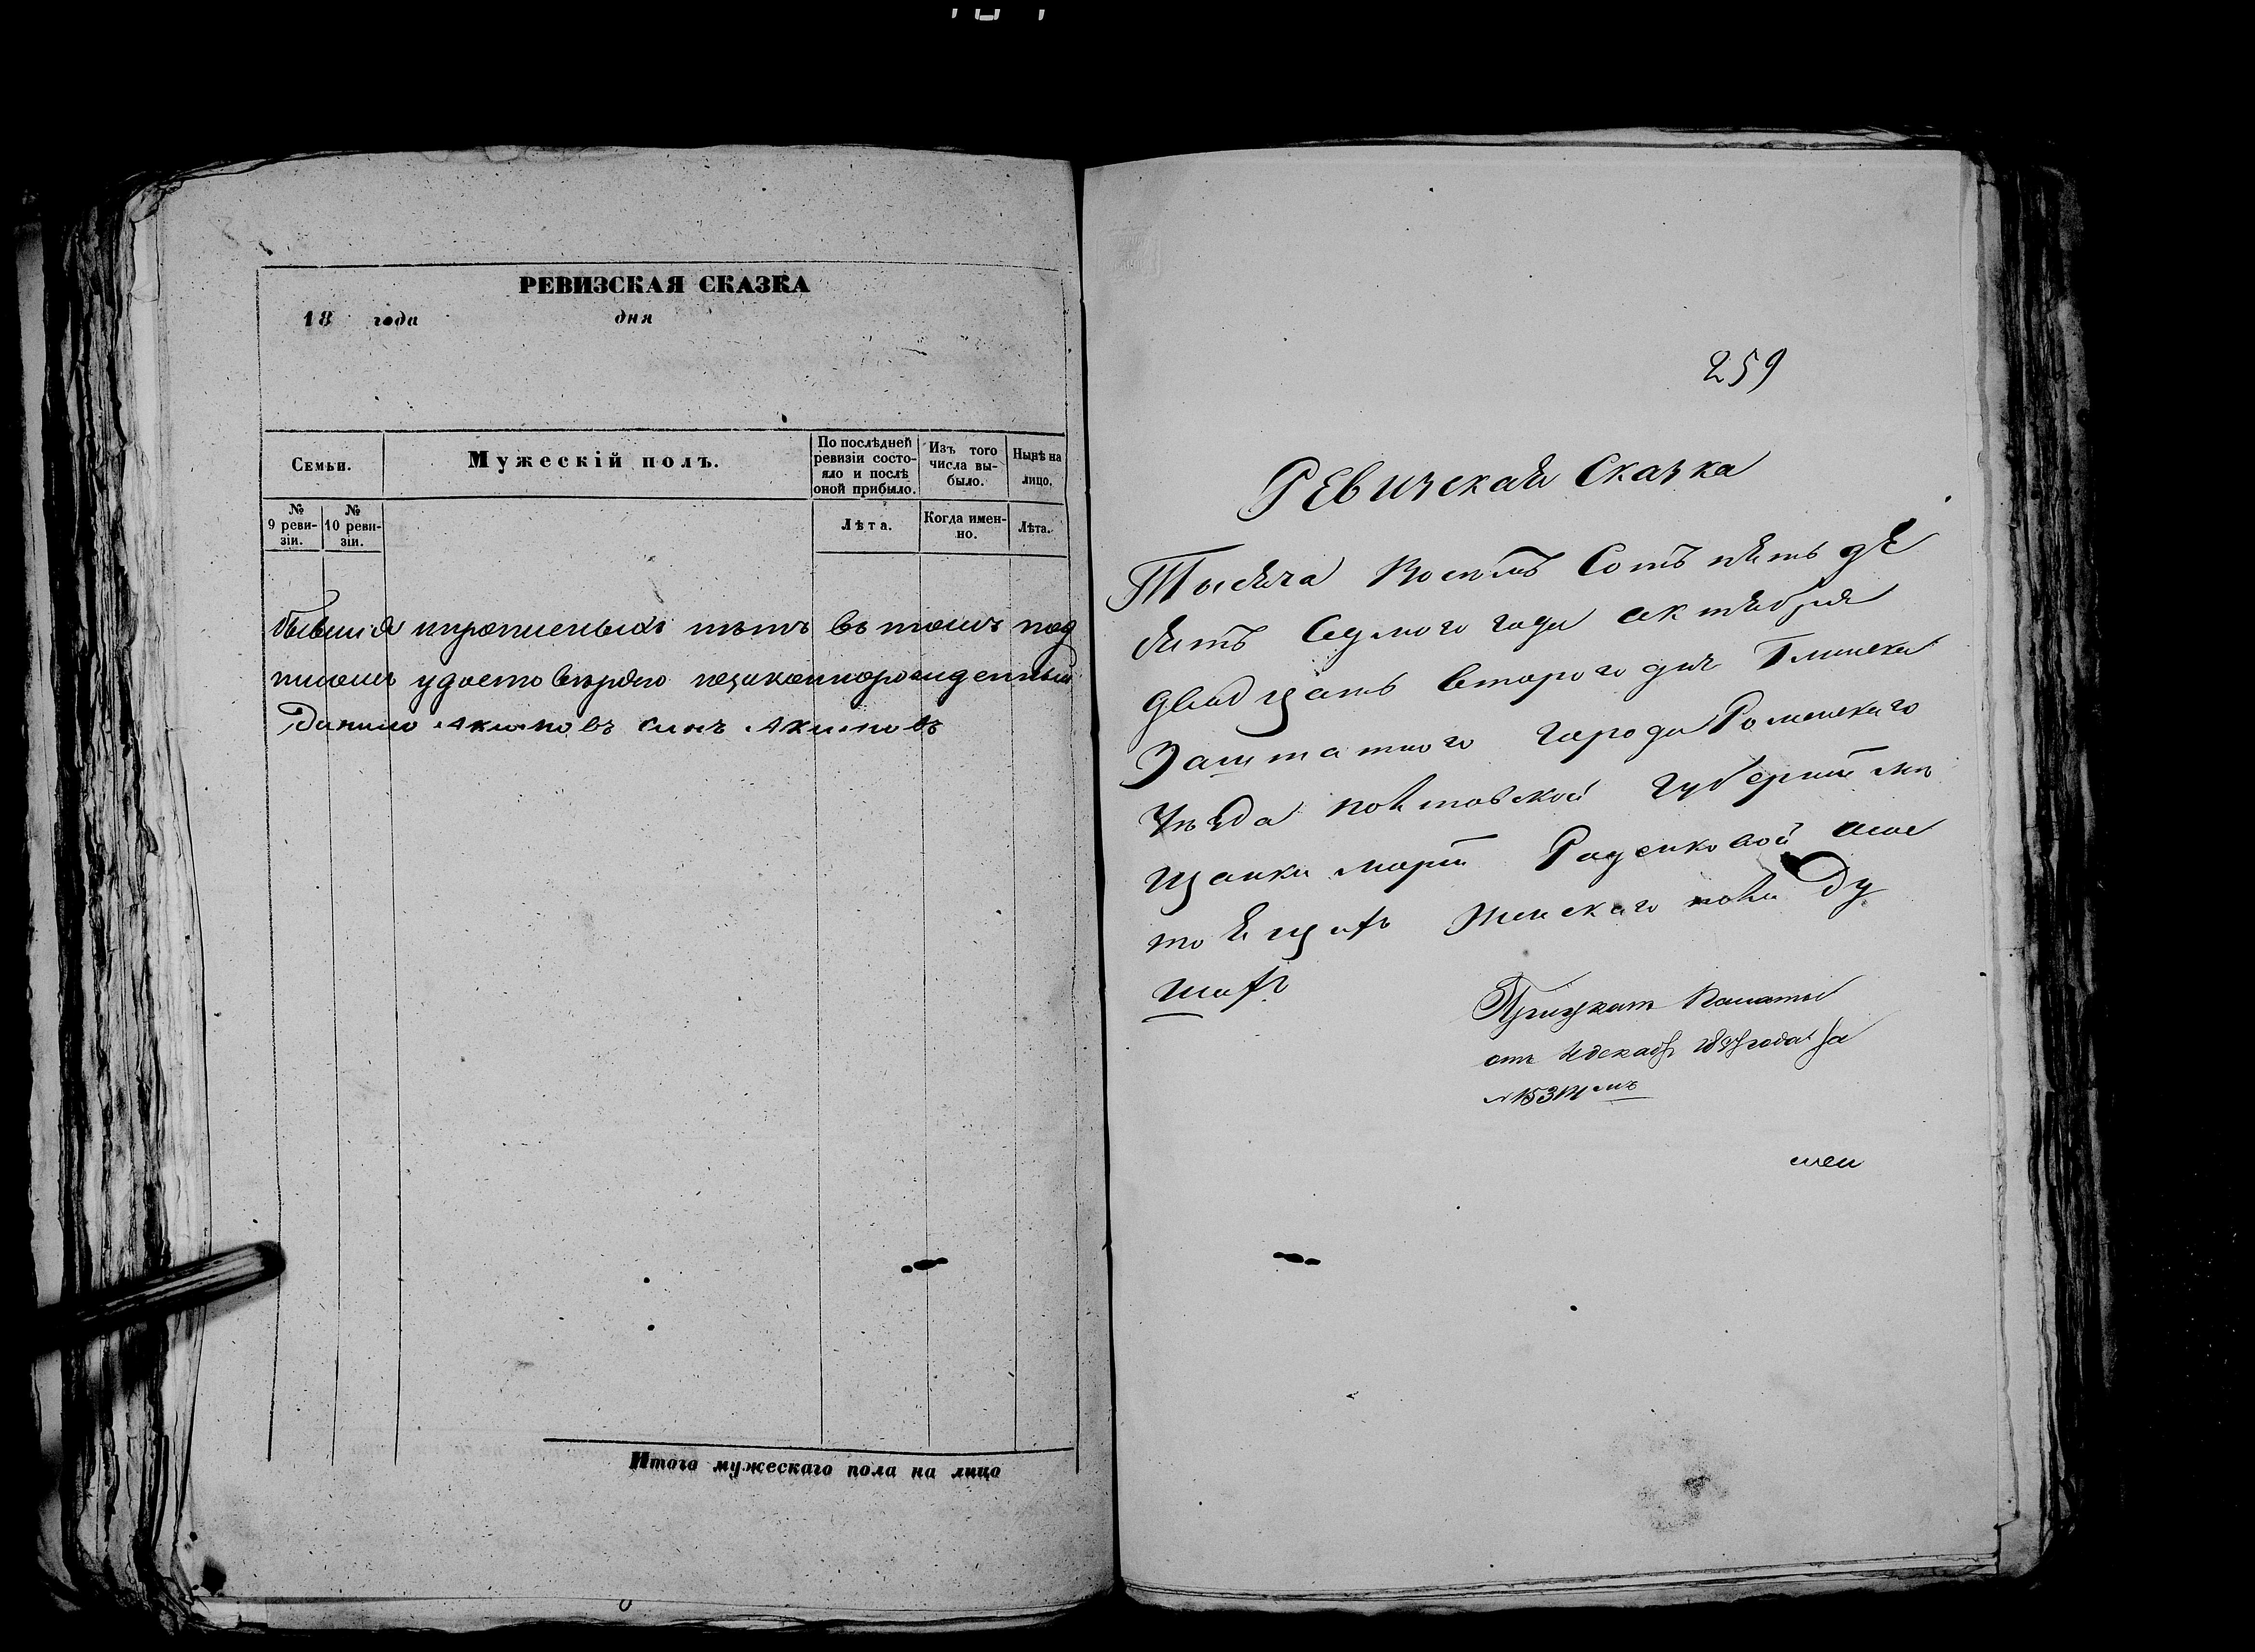 РЕВИЗСКАЯ СКАЗКА
18 года дня
Семьи.
Мужескій полъ.
По послѣдней ревизіи состо-
яло и послѣ
оной прибыло.
Изъ того
числа вы-
было.
Нынѣ на
лицо.
№
9 реви-
зіи.
№
10 реви-
зіи.
Лѣта.
Когда имен-
но.
Лѣта.
въ томъ под
писомъ удостовѣряю незаконнорожденный
Данило Акимовъ синъ Акимовъ
Итого мужескаго пола на лицо
259
Ревизская Сказка
Тысяча Восемъ Сотъ пять де
сятъ Седмого года октября
двадцать второго дня Глинска
Заштатного города Роменскаго
Уезда полтавской губерніи мѣ
щанки маріи Раденковой
тоящихъ женскаго пола ду
шахъ
Приуказѣ Палаты
отъ декабр года за